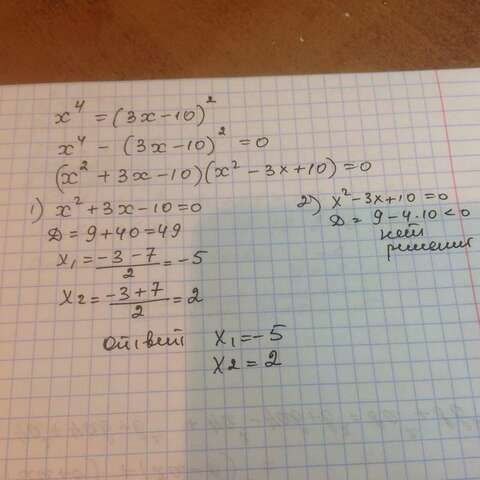 x⁴ = (3x-10)²
x⁴ - (3x-10)² = 0
(x² + 3x-10)(x² - 3x+10)=0
1) x² + 3x-10=0
D = 9+40=49
x₁ = (-3-7)/2 = -5
x₂ = (-3+7)/2 = 2
2) x²-3x+10=0
D = 9-4·10<0
нет
решения
Ответ x₁=-5
x₂=2